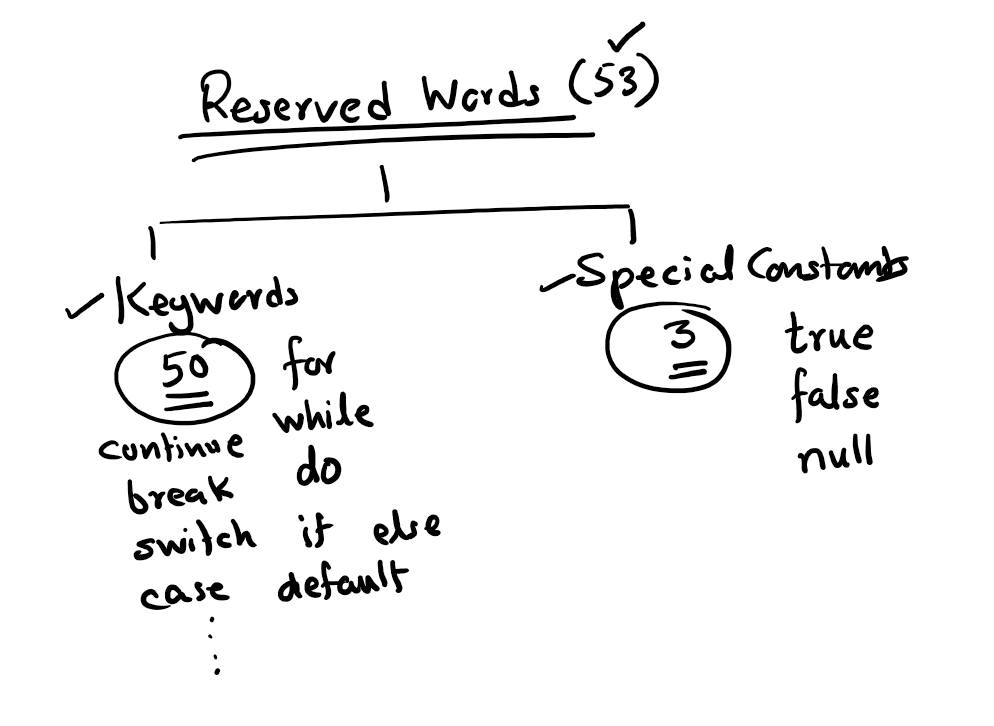 Reserved Words (53)
Keywords
50 for
while
continue
do
break
switch if else
case default
Special Constants
3 true
false
null